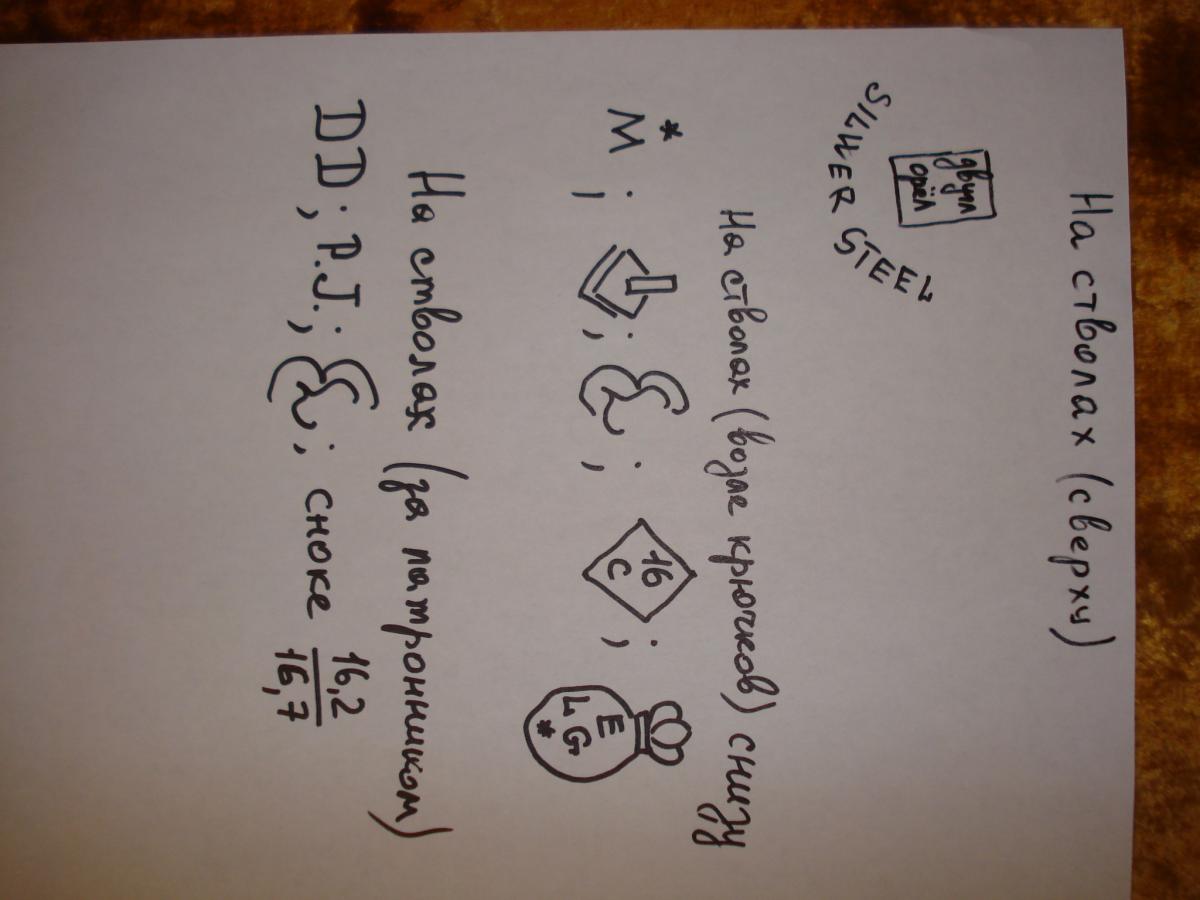 На стволах (сверху)
двугл
орёл
SILHER STEEL
На стволах (возле крючков) снизу
*
M ; ; ; 16 C ; E L G *
На стволах (за патронником)
DD; P.J.; ; сноке 16,2
16,7